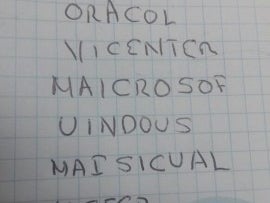 ORACOL
VICENTER
MAICROSOF
UINDOUS
MAISICUAL